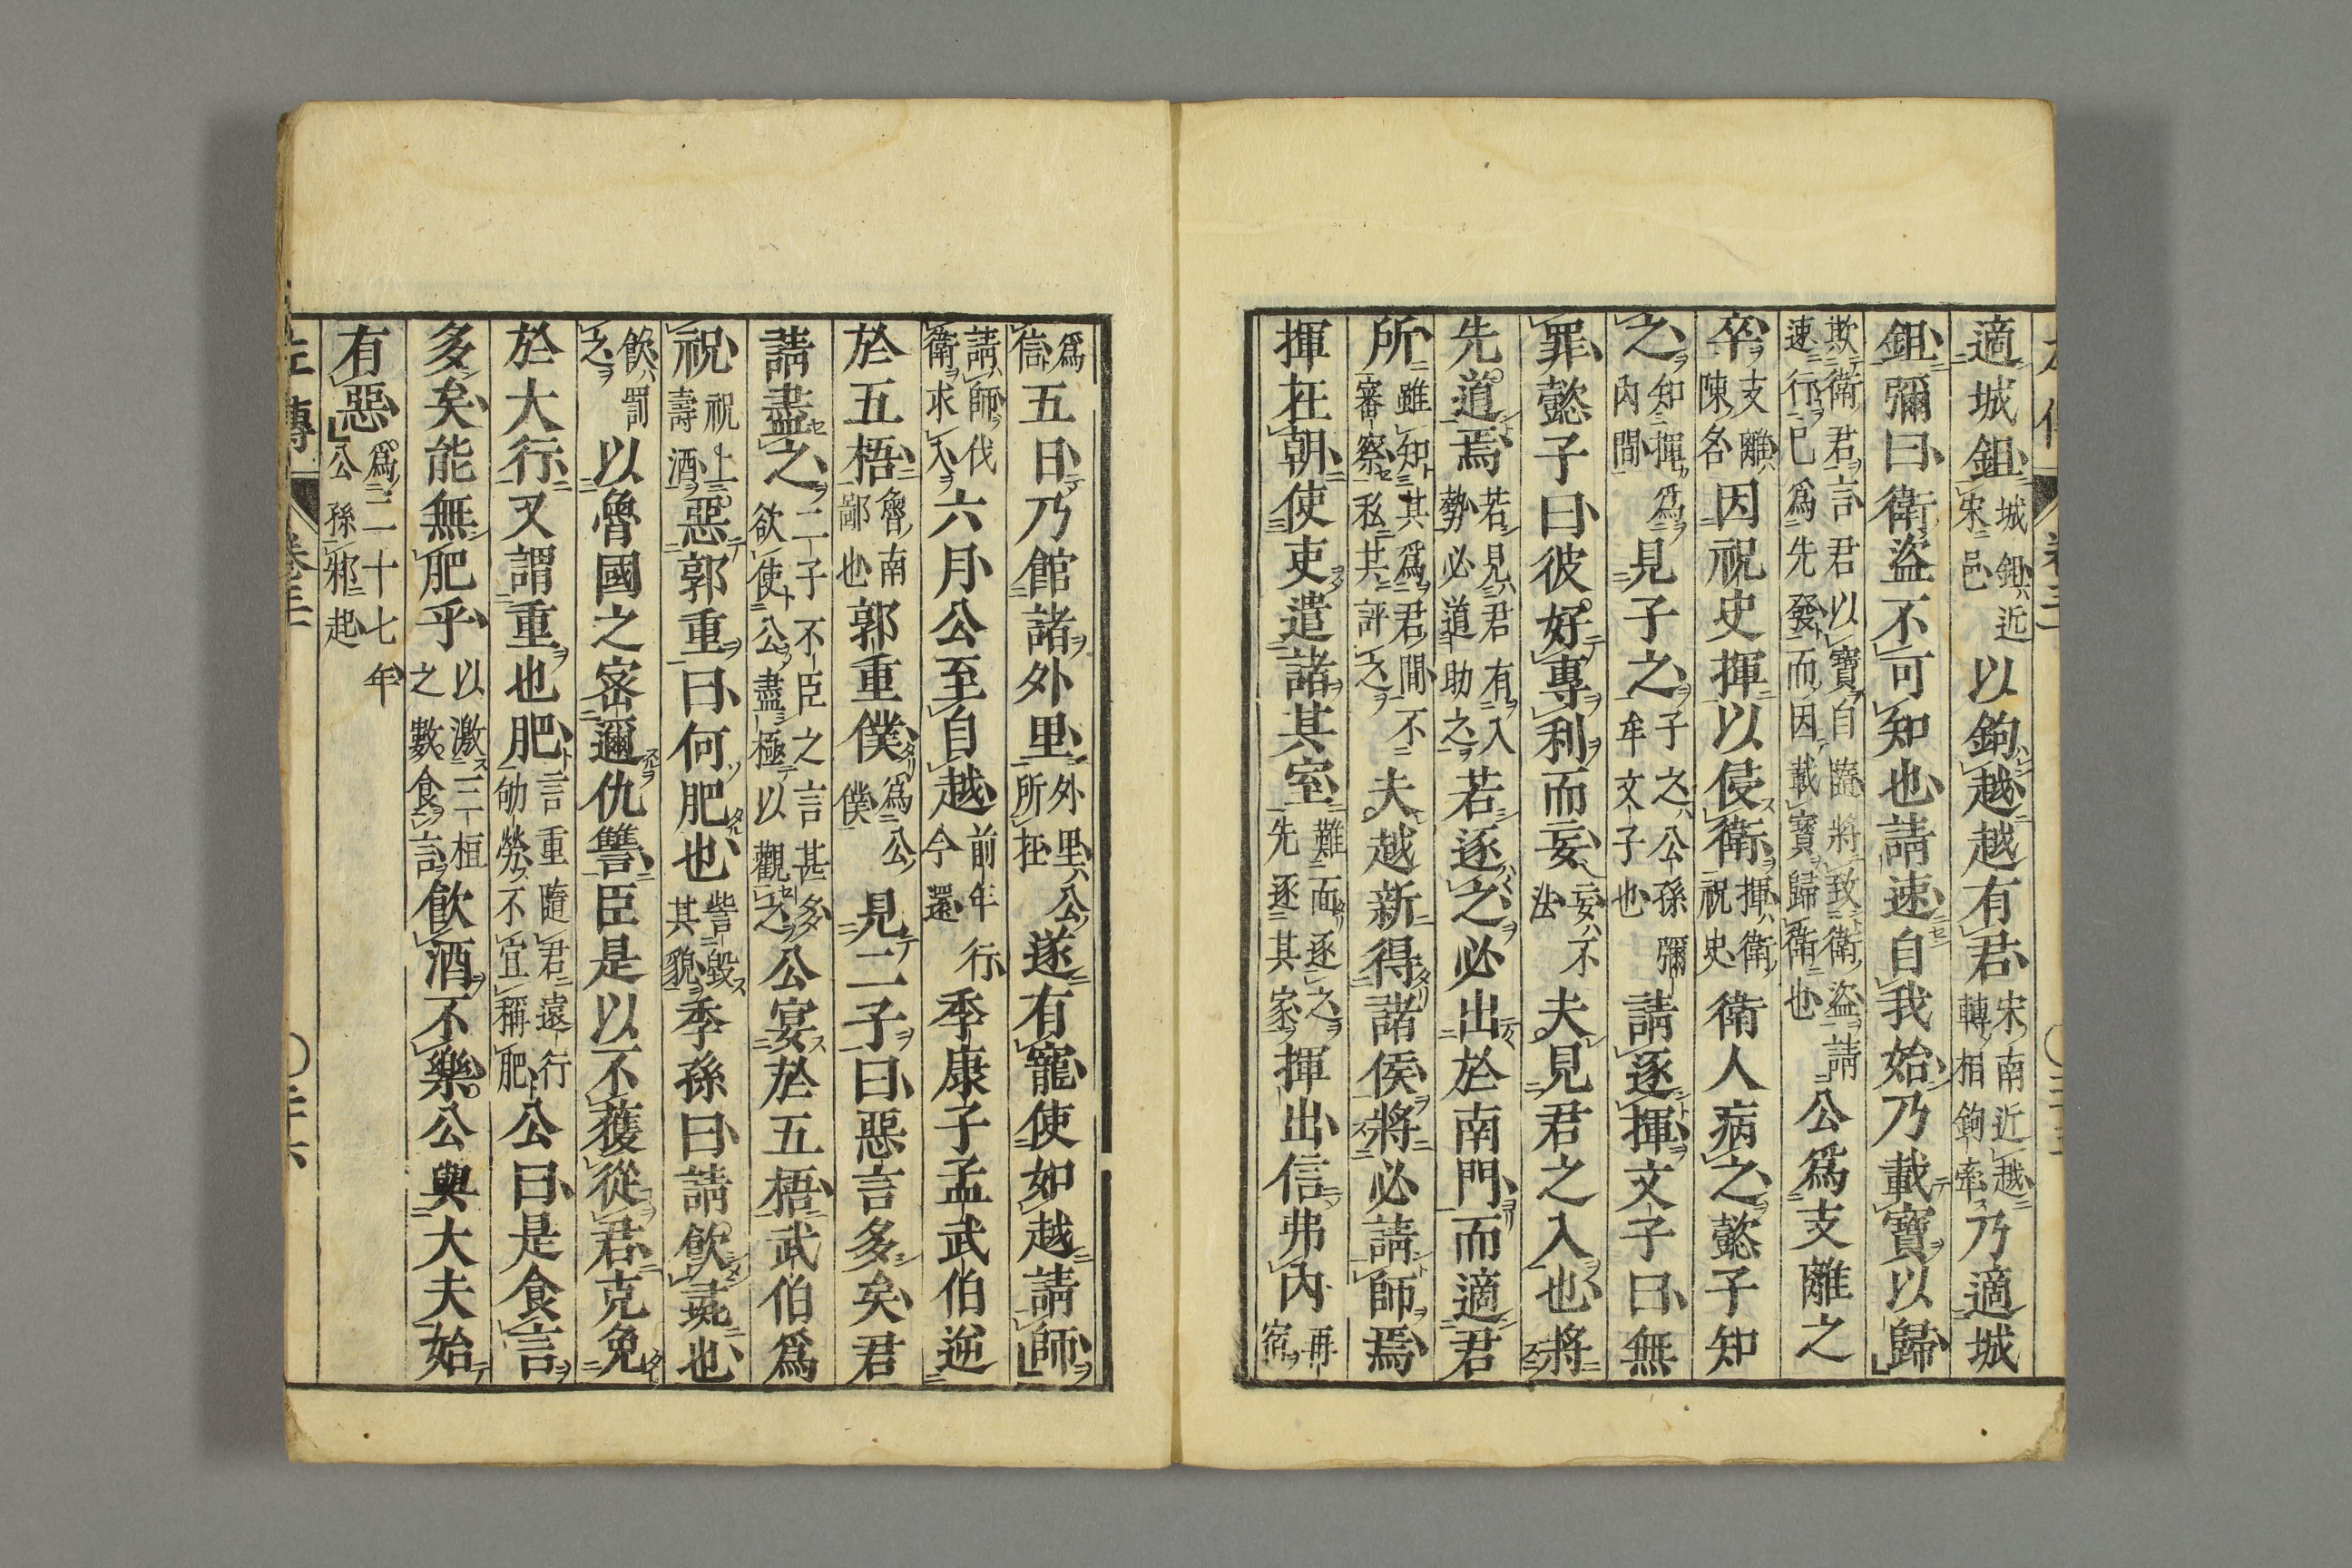 適城鉏城鉏近宋邑以鉤越越有君宋南近越轉相鉤牽乃適城
鉏彌曰衛盜不可知也請速自我始乃載寶以歸
欺衛君言君以寶自隨將致衛盜請速行已爲先發而因載寶歸衛也公爲支離之
卒支離陳名因祝史揮以侵衛揮衛祝史衛人病之懿子知
之知揮爲內間見子之子之公孫彌牟文子也請逐揮文子曰無
罪懿子曰彼好專利而妄妄不法夫見君之入也將
先道焉若見君有入勢必道助之若逐之必出於南門而適君
所雖知其爲君間不審察私共評之夫越新得諸侯將必請師焉
揮在朝使吏遣諸其室難面逐之先逐其家揮出信弗內再宿
爲信五日乃館諸外里外里公所在遂有寵使如越請師
請師伐衛求入六月公至自越前年行今還季康子孟武伯逆
於五梧魯南鄙也郭重僕爲公僕見二子曰惡言多矣君
請盡之二子不臣之言甚多欲使公盡極以觀之公宴於五梧武伯爲
祝祝上壽酒惡郭重曰何肥也訾毀其貌季孫曰請飮彘也
飮罰之以魯國之密邇仇讐臣是以不獲從君克免
於大行又謂重也肥言重隨君遠行劬勞不宜稱肥公曰是食言
多矣能無肥乎以激三桓之數食言飮酒不樂公與大夫始
有惡爲二十七年公孫邪起
左傳 卷三 〇三十六